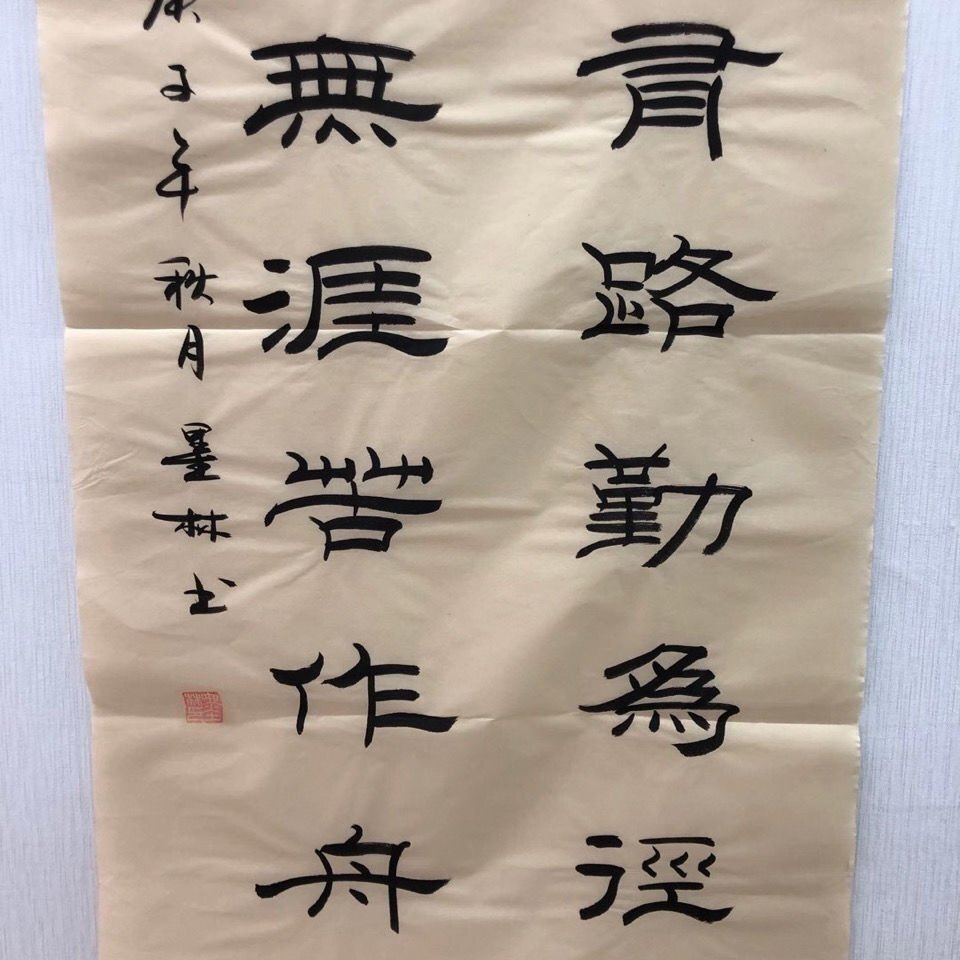 有路勤為徑
無涯苦作舟
庚子年秋月墨林书